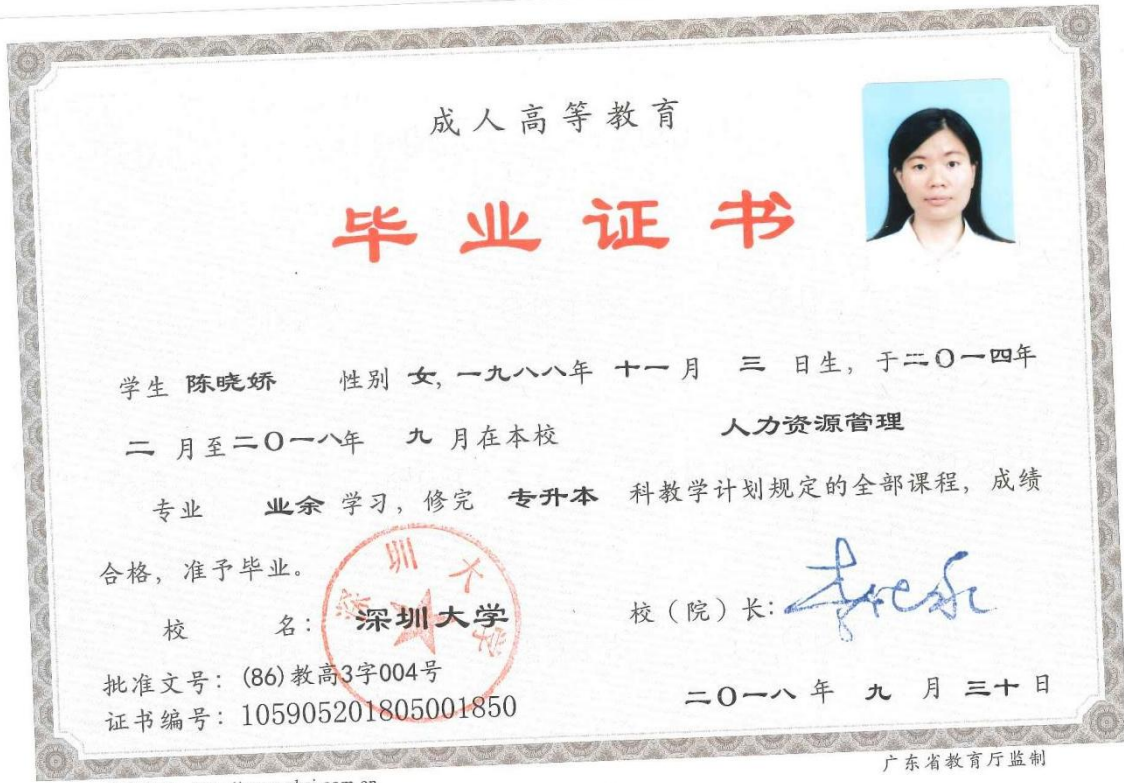 成人高等教育
毕业证书
学生 陈晓娇 性别 女, 一九八八年 十一月 三 日生, 于二〇一四年
二 月至二〇一八年 九 月在本校 人力资源管理
专业 业余 学习, 修完 专升本 科教学计划规定的全部课程, 成绩
合格, 准予毕业。
深圳大学
校 名: 深圳大学
校（院）长:
批准文号: (86)教高3字004号
二〇一八 年 九 月 三十 日
证书编号: 105905201805001850
广东省教育厅监制